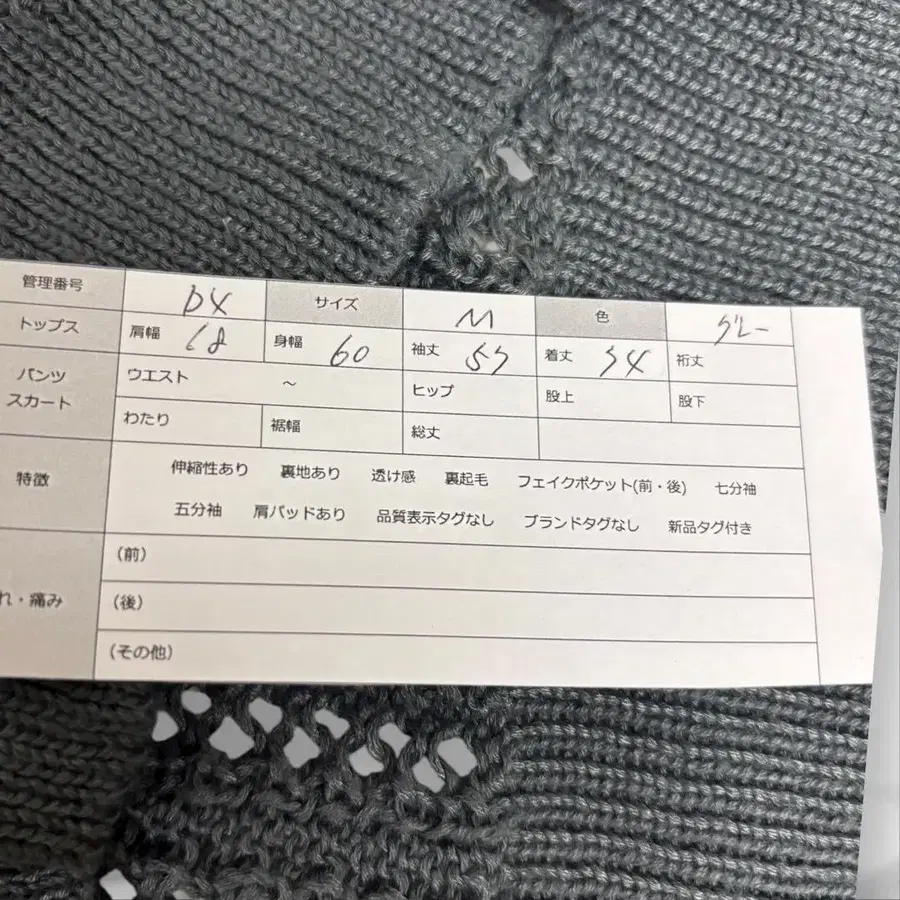 管理番号 DX サイズ M 色 グレー
トップス 肩幅 身幅 60 袖丈 着丈 裄丈
パンツ スカート ウエスト ～ ヒップ 股上 股下
わたり 裾幅 総丈
特徴 伸縮性あり 裏地あり 透け感 裏起毛 フェイクポケット(前・後) 七分袖
五分袖 肩パッドあり 品質表示タグなし ブランドタグなし 新品タグ付き
(前)
れ・痛み (後)
(その他)